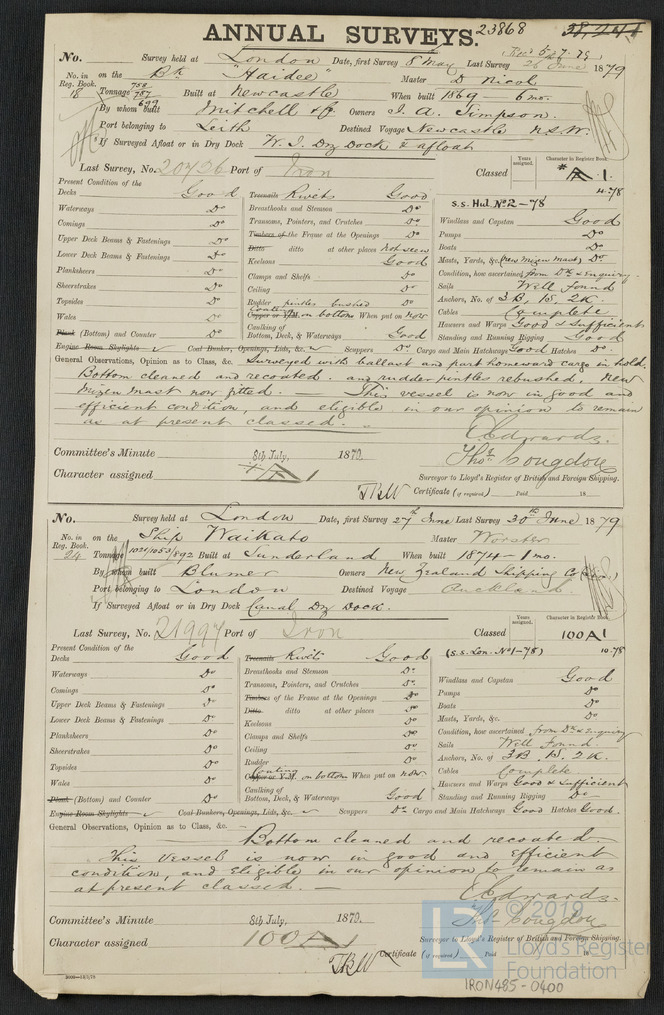 ANNUAL SURVEYS. 23868
No. Survey held at London Date, first Survey 8 May Last Survey 26 June 1879
No. in Reg. Book. on the Bk "Haidee" Master D Nicol
18 Tonnage 758 737 699 Built at Newcastle When built 1869 - 6 mo.
By whom built Mitchell & Co. Owners J. A. Simpson.
Port belonging to Leith Destined Voyage Newcastle N.S.W.
If Surveyed Afloat or in Dry Dock W. I. Dry Dock & afloat
Last Survey, No. 20726 Port of Iron Classed Years assigned. Character in Register Book. A 1.
4.78
Present Condition of the
Decks Good Treenails Rivets Good S.S. Hul. No 2 - 78
Waterways Do Breasthooks and Stemson Do Windlass and Capstan Good
Comings Do Transoms, Pointers, and Crutches Do Pumps Do
Upper Deck Beams & Fastenings Do Timbers of the Frame at the Openings Do Boats Do
Lower Deck Beams & Fastenings Do Ditto ditto at other places not seen Masts, Yards, &c. (new mizen mast) Do
Planksheers Do Keelsons Good Condition, how ascertained from Dk & Enquiry.
Sheerstrakes Do Clamps and Shelfs Do Sails Well found
Topsides Do Ceiling Do Anchors, No. of 3B, 1S, 2K.
Wales Do Rudder pintles bushed Do Cables Complete
Plank (Bottom) and Counter Do Coating Copper or Y.M. on bottom When put on now Hawsers and Warps Good & sufficient
Caulking of Bottom, Deck, & Waterways Good Standing and Running Rigging Good
Engine Room Skylights Coal Bunker, Openings, Lids, &c. Scuppers Do Cargo and Main Hatchways Good Hatches Do
General Observations, Opinion as to Class, &c. Surveyed with ballast and part homeward cargo in hold.
Bottom cleaned and recoated and rudder pintles rebushed. New
mizen mast now fitted. — This vessel is now in good and
efficient condition, and eligible in our opinion to remain
as at present classed.
C Edwards.
Thos. Congdon
Committee's Minute 8th July, 1879
Surveyor to Lloyd's Register of British and Foreign Shipping.
Character assigned A1
TBW Certificate (if required) Paid 18
No. Survey held at London Date, first Survey 27th June Last Survey 30th June 1879
No. in Reg. Book. on the Ship Waikato Master Worster
24 Tonnage 1021/1053/892 Built at Sunderland When built 1874 - 1 mo.
By whom built Blumer Owners New Zealand Shipping Co
Port belonging to London Destined Voyage Auckland
If Surveyed Afloat or in Dry Dock Canal Dry Dock.
Last Survey, No. 21997 Port of Iron Classed Years assigned. Character in Register Book. 100A1
(S.S. Lon. No 1 - 78) 10.78
Present Condition of the
Decks Good Treenails Rivets Good
Waterways Do Breasthooks and Stemson Do Windlass and Capstan Good
Comings Do Transoms, Pointers, and Crutches Do Pumps Do
Upper Deck Beams & Fastenings Do Timbers of the Frame at the Openings Do Boats Do
Lower Deck Beams & Fastenings Do Ditto ditto at other places Do Masts, Yards, &c. Do
Planksheers Do Keelsons Do Condition, how ascertained from Dk & Enquiry
Sheerstrakes Do Clamps and Shelfs Do Sails Well found.
Topsides Do Ceiling Do Anchors, No. of 3B, 1S, 2K.
Wales Do Rudder Do Cables Complete
Plank (Bottom) and Counter Do Coating Copper or Y.M. on bottom When put on now Hawsers and Warps Good & sufficient
Caulking of Bottom, Deck, & Waterways Good Standing and Running Rigging Do
Engine Room Skylights Coal Bunkers, Openings, Lids, &c. Scuppers Do Cargo and Main Hatchways Good Hatches Good.
General Observations, Opinion as to Class, &c. — Bottom cleaned and recoated.
This vessel is now in good and efficient
condition, and eligible in our opinion to remain as
at present classed. —
C Edwards.
Thos Congdon
Committee's Minute 8th July, 1879.
Surveyor to Lloyd's Register of British and Foreign Shipping.
Character assigned 100 A1
TBW Certificate (if required) Paid 18
LR © 2019 Lloyd's Register Foundation
IRON485-0400